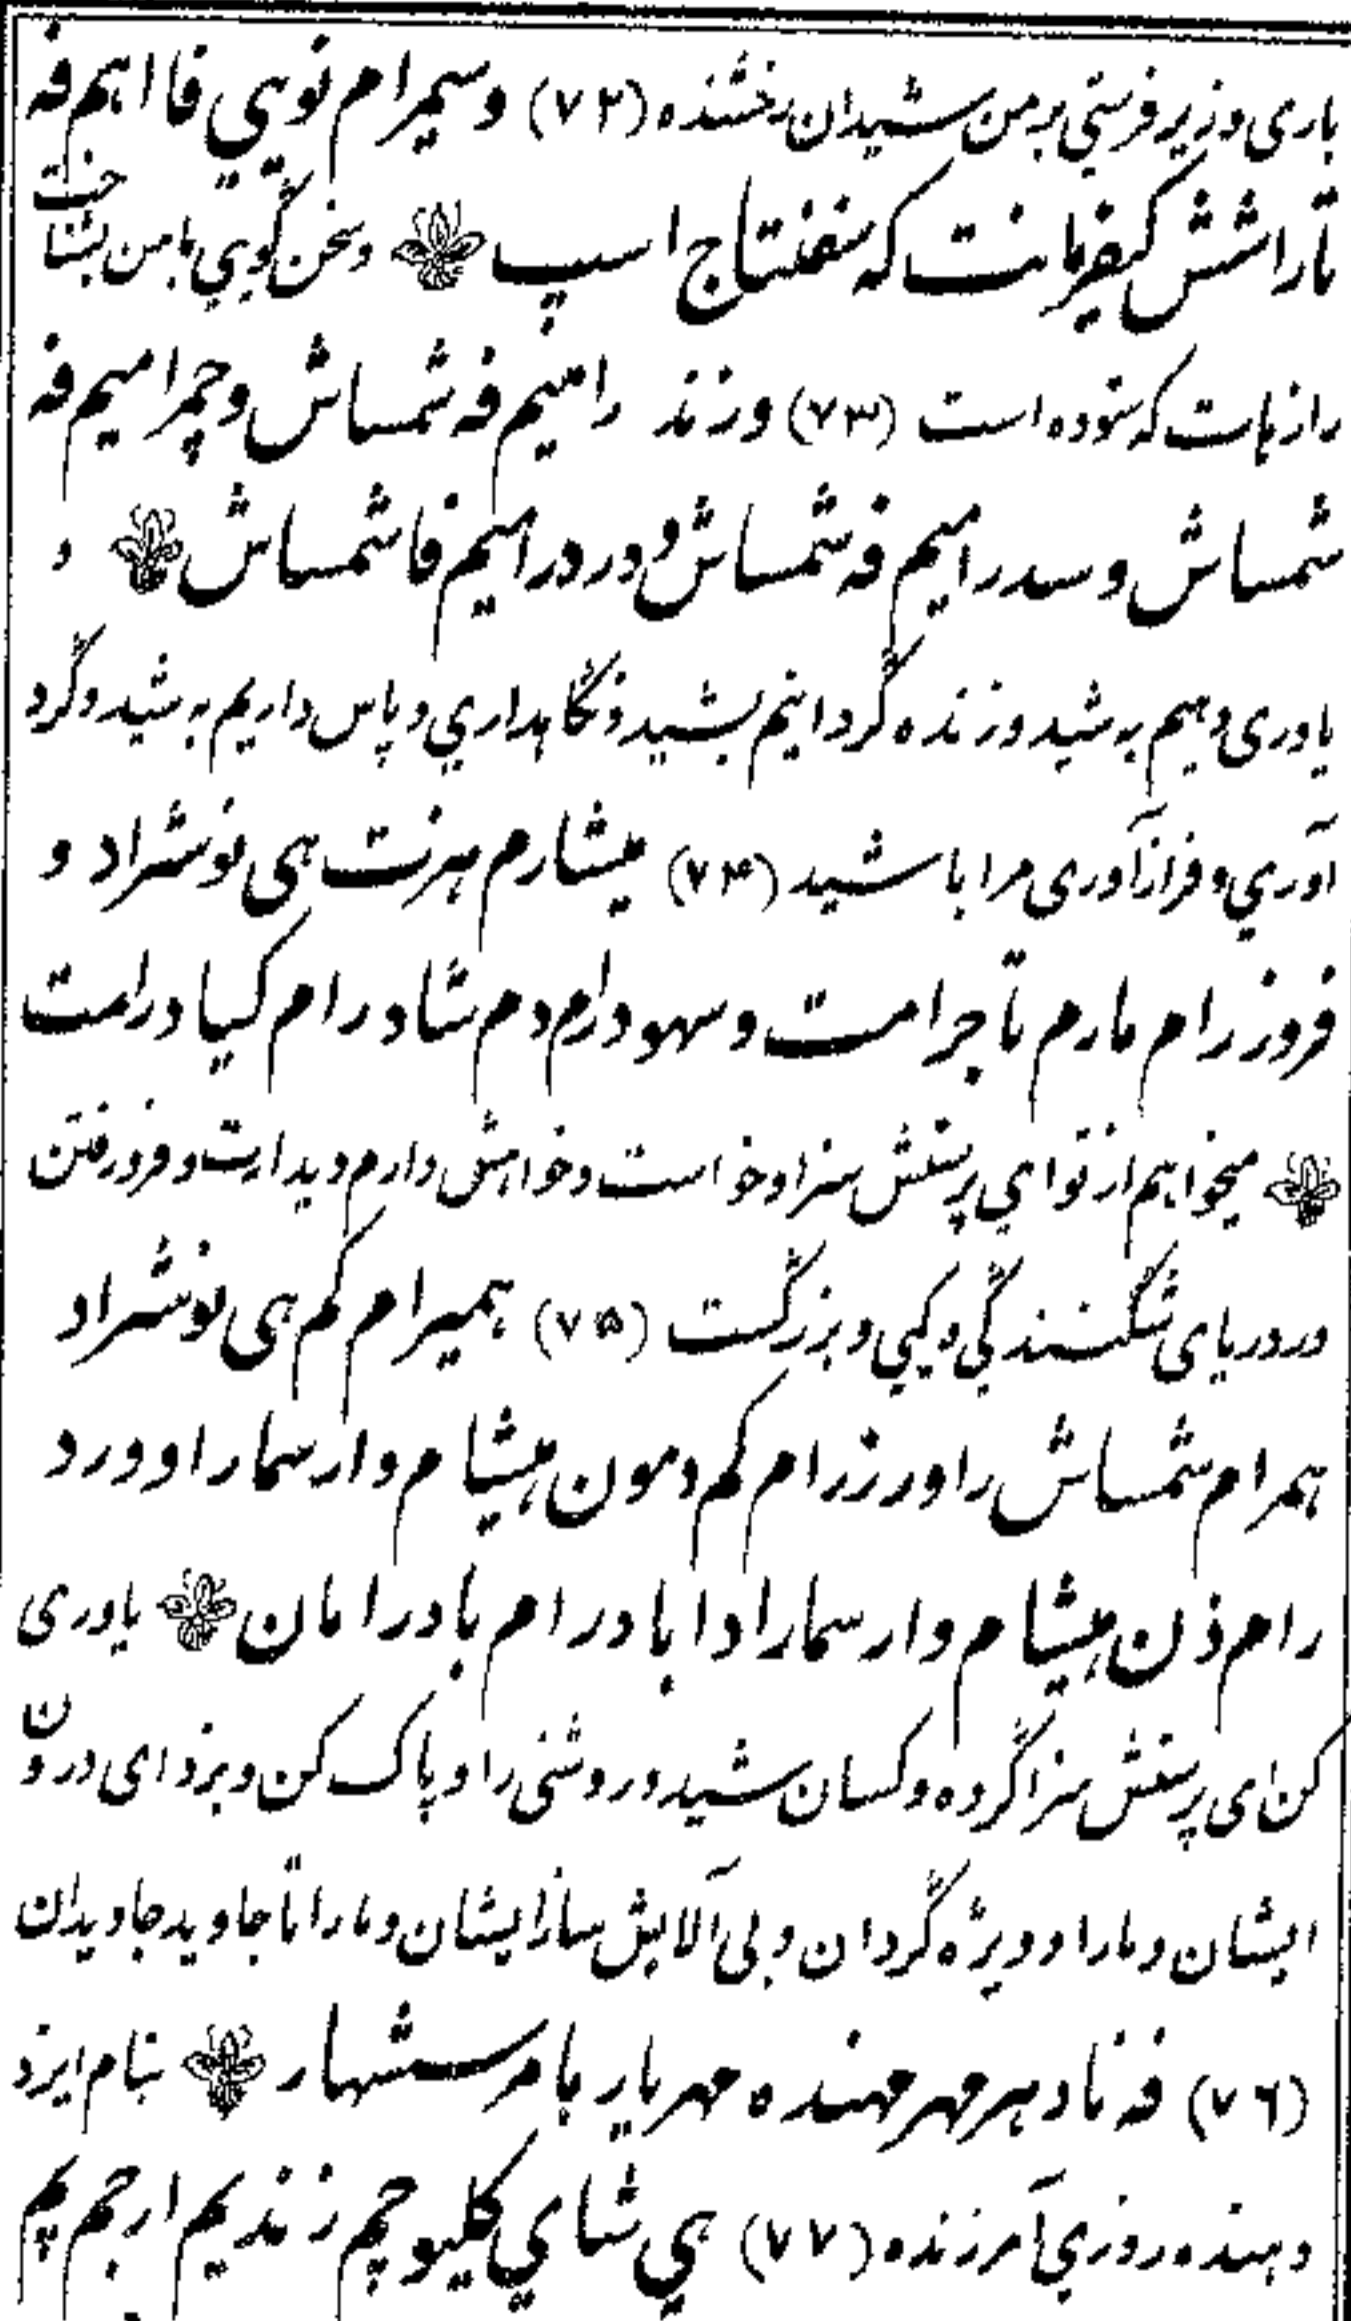 باری وزیر فرستی بر من شیدان رخشنده (۷۲) و سیمرام نویی فا اهم فه
تاراشش کیفرمانت که سفنتاج اسپ ❀ و سخن گویی با من بشناخت
رازهات که ستوده است (۷۳) و زند رامیم فه شمساش و چمرامیم فه
شمساش و سدرامیم فه شمساش و دورد رامیم فا شمساش ❀ و
یاوری دهیم به شید و زنده گردانیم بشید و نگاهداری و پاس داریم به شید و گرد
آوری و فراز آوری مرا با شید (۷۴) میشارم هرنت هی نوشراد و
فروز رام مارم تا جرامت و سهودارم دم شادرام کیا درامت
❀ میخواهم از تو ای پرستش سزاد خواست و خواهش دارم دیدارت و فرو رفتن
در دریای شکنندگی و کیی و بزرگیت (۷۵) همیرام کم هی نوشراد
همرام شمساش را ورزرام کم دمون هیشام وارسمار او ورد
رام ذن هیشام وارسمار اوابادرام بادرامان ❀ یاوری
کن ای پرستش سزا گروه و کسان شید و روشنی را و پاک کن و بزدای درون
ایشان و مارا و ویژه گردان و بی آلایش ساز ایشان و مارا تا جاوید جاویدان
(۷٦) فه ناد هر مهر مهنده مهریار بامرستهار ❀ بنام ایزد
دهنده روزی آمرزنده (۷۷) هی شای کلیو چم زندیم ارجم پم